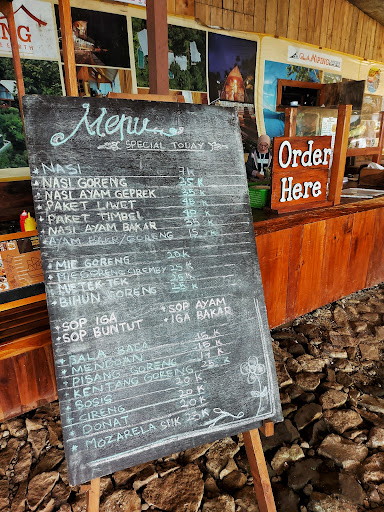 Menu
SPECIAL TODAY
NASI 7K
NASI GORENG 25 K
NASI AYAM GEPREK K
PAKET LIWET K
PAKET TIMBEL K
NASI AYAM BAKAR K
AYAM BAKR/GORENG 15 K
MIE GORENG 20 K
MIE GORENG CIREMBY 25 K
MIE TEK TEK K
BIHUN GORENG K
SOP IGA
SOP BUNTUT
SOP AYAM
IGA BAKAR
BALA BALA 15 K
MENDOAN 15 K
PISANG GORENG K
KENTANG GORENG 25 K
SOSIS 20 K
CIRENG 20 K
DONAT 20 K
MOZARELA STIK K
Order
Here
GLAMPING
NG